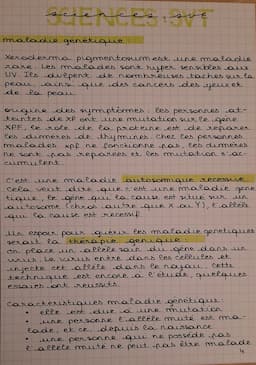 SCIENCES SVT
sciences svt
maladie génétique
Xeroderma pigmentosum est une maladie
rare. Les malades sont hyper sensibles aux
UV. Ils dvlpent de nombreuses taches sur la
peau ainsi que des cancers des yeux et
de la peau.
origine des symptômes: les personnes at-
teintes de XP ont une mutation sur le gène
XPF. Le rôle de la protéine est de réparer
les dimères de thymines. Chez les personnes
malades xpf ne fonctionne pas, les dimères
ne sont pas réparés et les mutation s'ac-
cumulent.
C'est une maladie autosomique récessive
cela veut dire que c'est une maladie géné
tique, le gène qui la cause est situé sur un
autosome (chro autre que X ou Y), l'allèle
qui la cause est récessif.
Un espoir pour guérir les maladies génétiques
serait la thérapie génique
on place un allèle sain du gène dans un
virus. Le virus entre dans les cellules et
injecte cet allèle dans le noyau. Cette
technique est encore à l'étude, quelques
essaies ont réussit.
Caractéristiques maladie génétique:
• elle est due à une mutation
• une personne l'allèle muté est ma-
lade, et ce, depuis la naissance
• une personne qui ne possède pas
l'allèle muté ne peut pas être malade